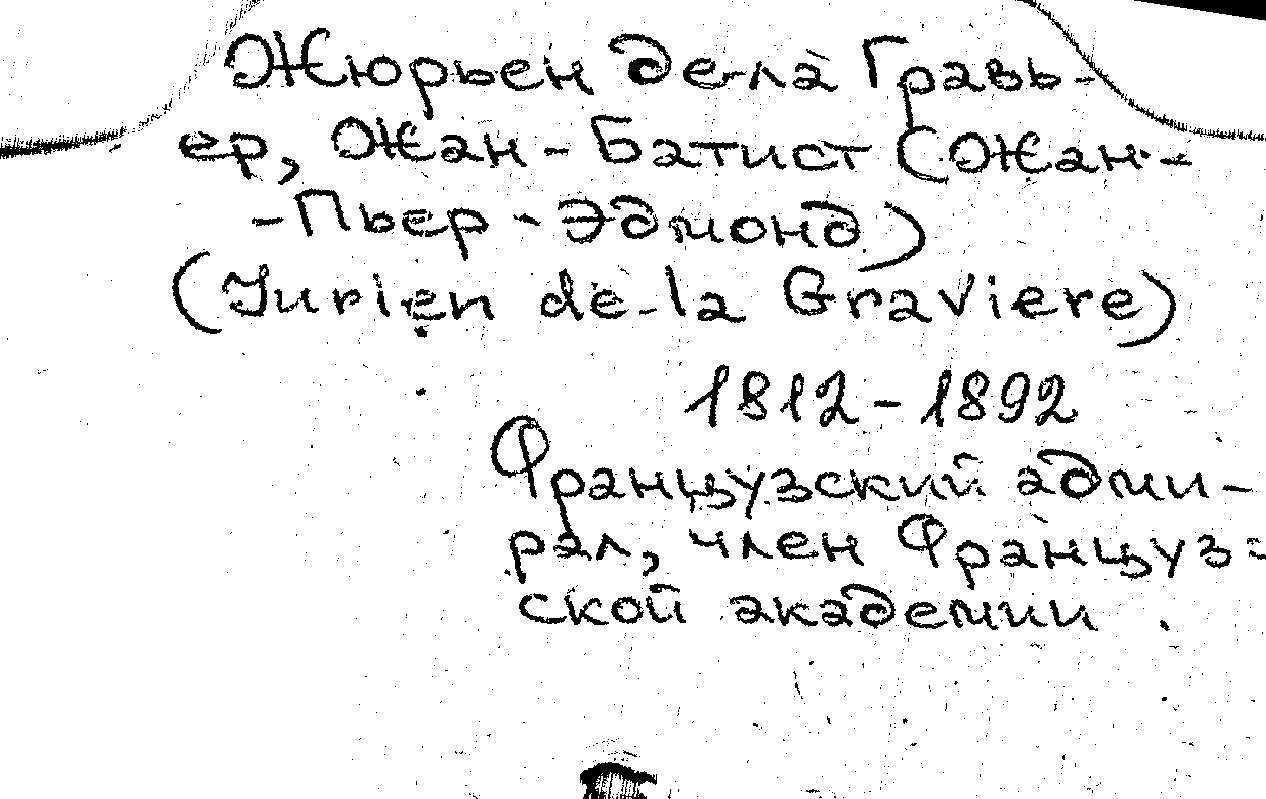 Жюрьен де-ла Гравь-
ер, Жан-Батист (Жан-
-Пьер-Эдмонд)
(Jurien de-la Graviere)
1812-1892
Французский адми-
рал, член Француз-
ской академии.